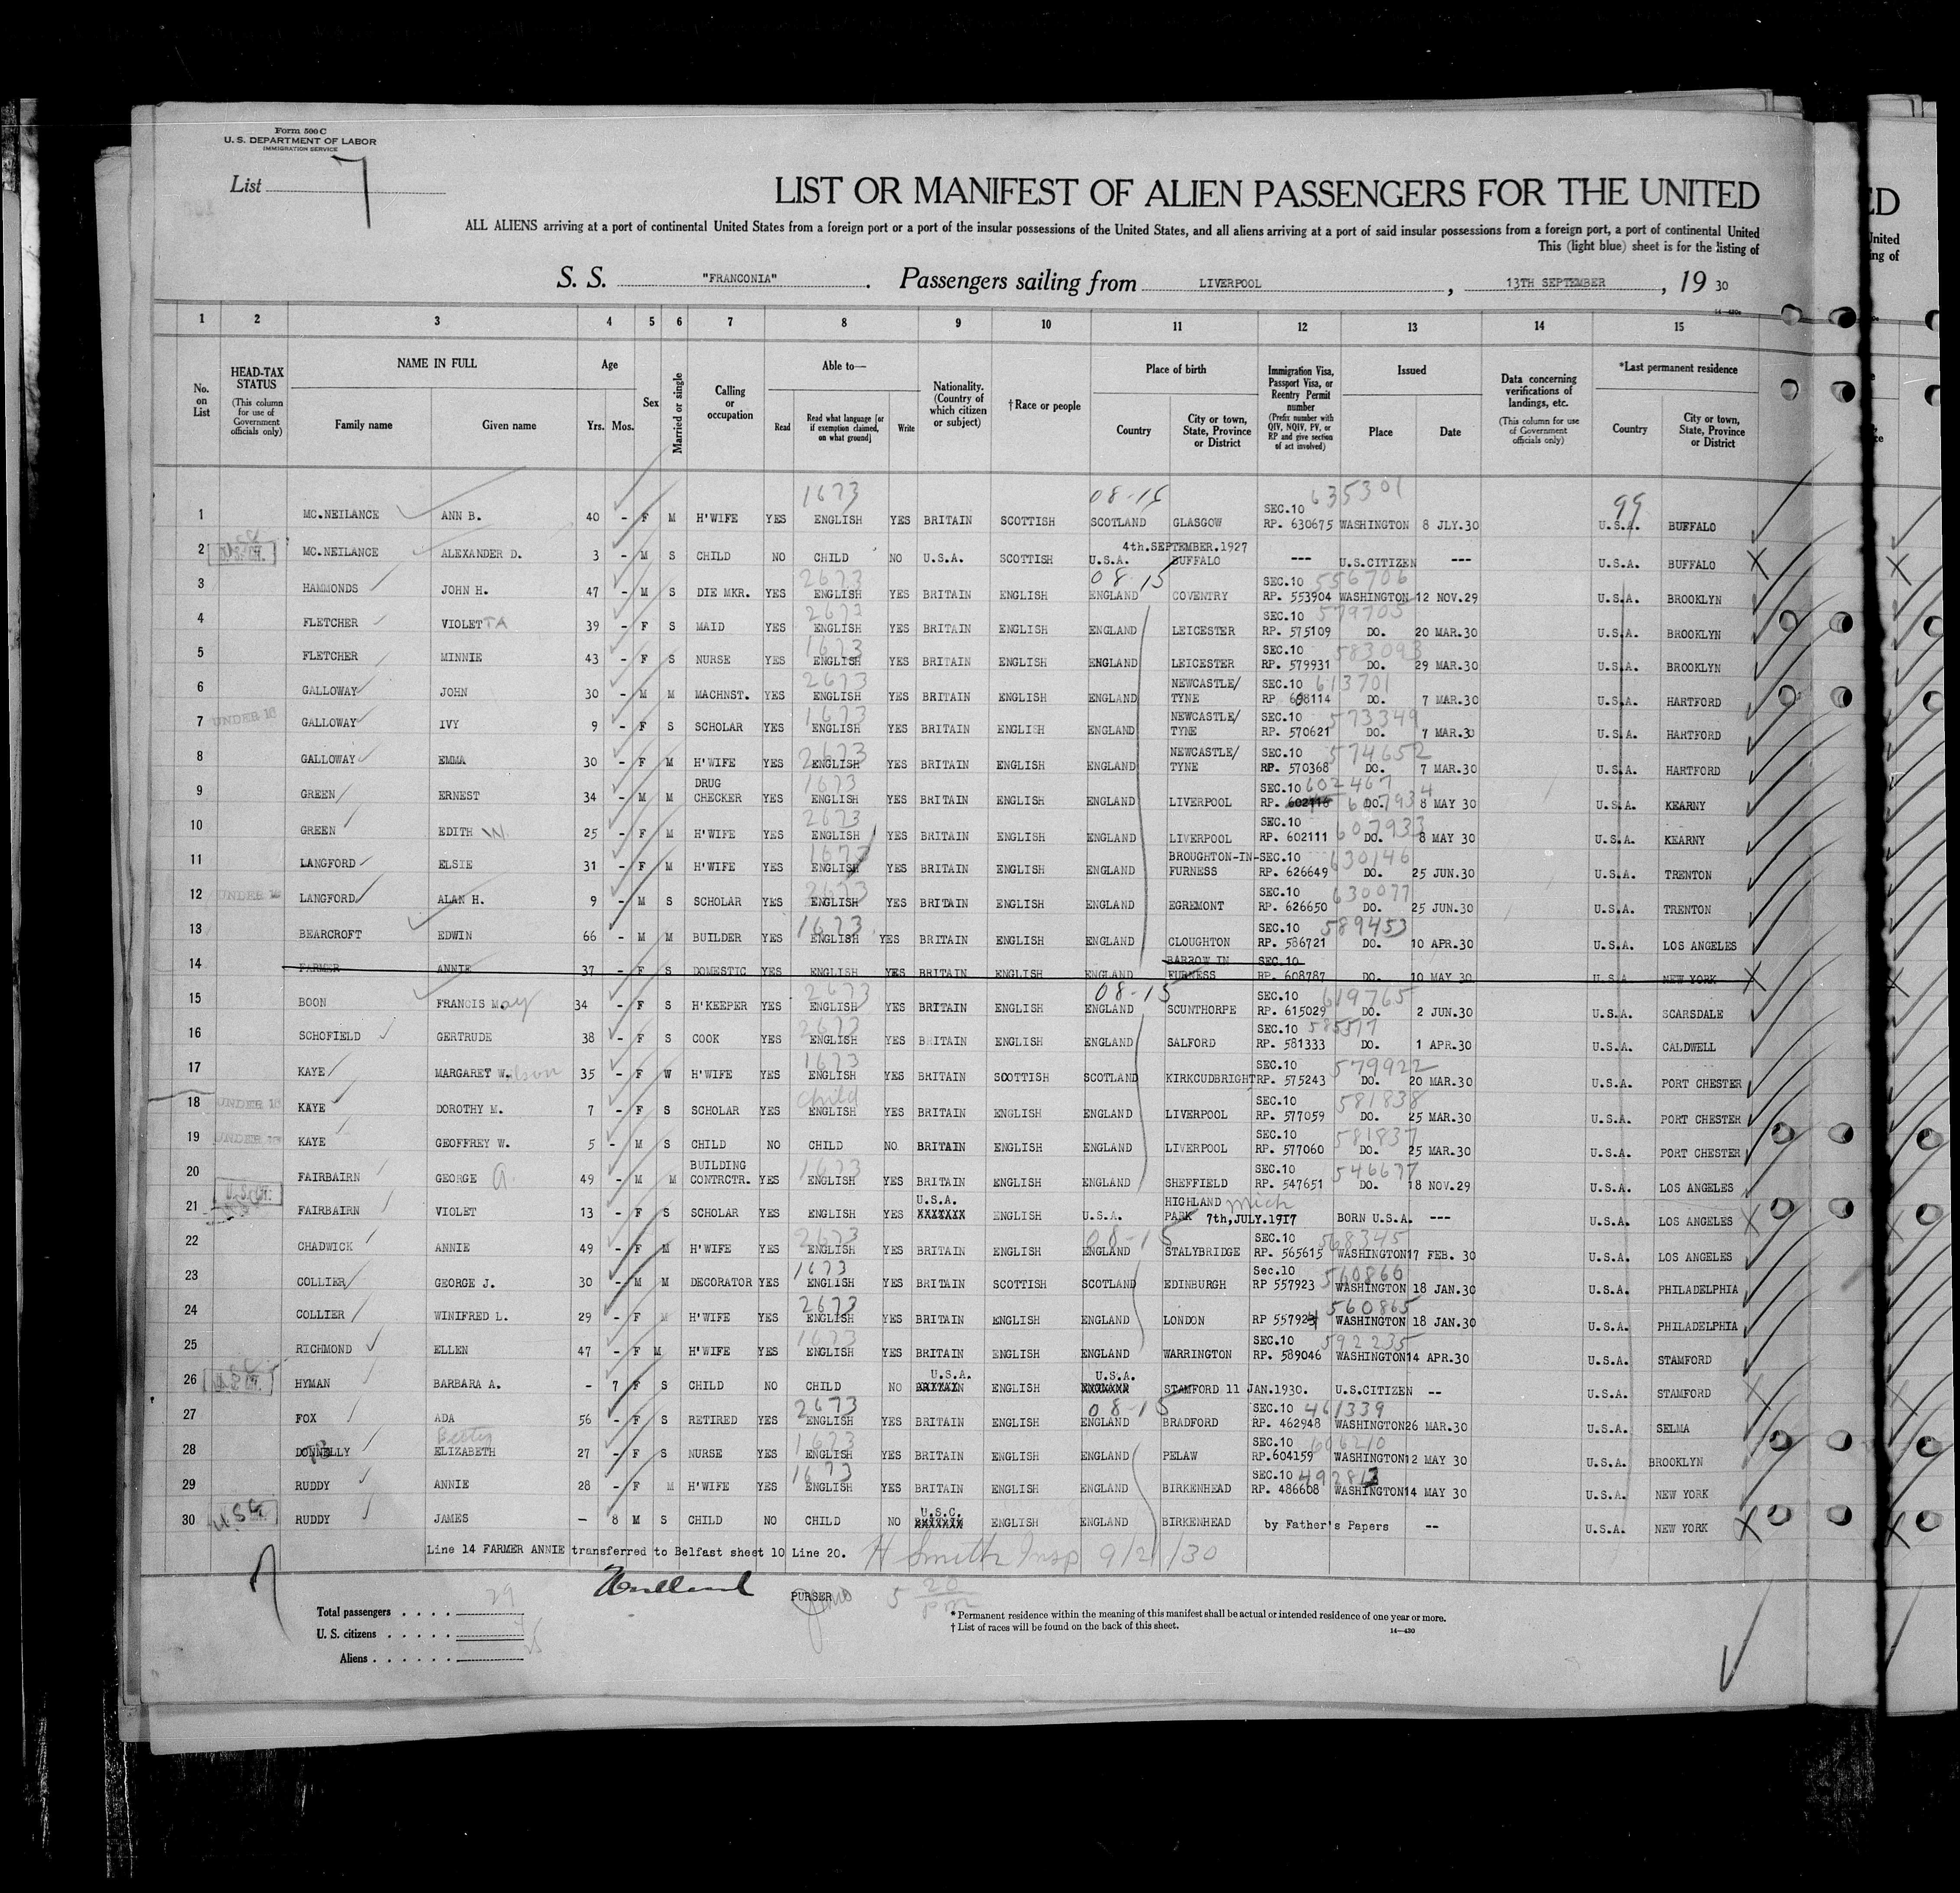 Form 500 C
U. S. DEPARTMENT OF LABOR
IMMIGRATION SERVICE
List 7
LIST OR MANIFEST OF ALIEN PASSENGERS FOR THE UNITED
ALL ALIENS arriving at a port of continental United States from a foreign port or a port of the insular possessions of the United States, and all aliens arriving at a port of said insular possessions from a foreign port, a port of continental United
This (light blue) sheet is for the listing of
S. S. "FRANCONIA". Passengers sailing from LIVERPOOL, 13TH SEPTEMBER, 19 30
14—430c
1 2 3 4 5 6 7 8 9 10 11 12 13 14 15
No. on List
HEAD-TAX STATUS (This column for use of Government officials only)
NAME IN FULL
Family name Given name
Age Yrs. Mos.
Sex
Married or single
Calling or occupation
Able to—
Read Read what language [or if exemption claimed, on what ground] Write
Nationality. (Country of which citizen or subject)
†Race or people
Place of birth
Country City or town, State, Province or District
Immigration Visa, Passport Visa, or Reentry Permit number (Prefix number with QIV, NQIV, PV, or RP and give section of act involved)
Issued
Place Date
Data concerning verifications of landings, etc. (This column for use of Government officials only)
*Last permanent residence
Country City or town, State, Province or District
1673 08-15 635301 99
1 MC.NEILANCE ANN B. 40 - F M H'WIFE YES ENGLISH YES BRITAIN SCOTTISH SCOTLAND GLASGOW SEC.10 RP. 630675 WASHINGTON 8 JLY.30 U.S.A. BUFFALO
2 MC.NEILANCE ALEXANDER D. 3 - M S CHILD NO CHILD NO U.S.A. SCOTTISH U.S.A. 4th.SEPTEMBER.1927 BUFFALO --- U.S.CITIZEN --- U.S.A. BUFFALO X
2673 08-15 556706
3 HAMMONDS JOHN H. 47 - M S DIE MKR. YES ENGLISH YES BRITAIN ENGLISH ENGLAND COVENTRY SEC.10 RP. 553904 WASHINGTON 12 NOV.29 U.S.A. BROOKLYN
2673 579705
4 FLETCHER VIOLETTA 39 - F S MAID YES ENGLISH YES BRITAIN ENGLISH ENGLAND LEICESTER SEC.10 RP. 575109 DO. 20 MAR.30 U.S.A. BROOKLYN
1673 583093
5 FLETCHER MINNIE 43 - F S NURSE YES ENGLISH YES BRITAIN ENGLISH ENGLAND LEICESTER SEC.10 RP. 579931 DO. 29 MAR.30 U.S.A. BROOKLYN
2673 613701
6 GALLOWAY JOHN 30 - M M MACHNST. YES ENGLISH YES BRITAIN ENGLISH ENGLAND NEWCASTLE/ TYNE SEC.10 RP 608114 DO. 7 MAR.30 U.S.A. HARTFORD
1673 573349
7 UNDER 16 GALLOWAY IVY 9 - F S SCHOLAR YES ENGLISH YES BRITAIN ENGLISH ENGLAND NEWCASTLE/ TYNE SEC.10 RP. 570621 DO. 7 MAR.30 U.S.A. HARTFORD
2673 574652
8 GALLOWAY EMMA 30 - F M H'WIFE YES ENGLISH YES BRITAIN ENGLISH ENGLAND NEWCASTLE/ TYNE SEC.10 RP. 570368 DO. 7 MAR.30 U.S.A. HARTFORD
1673 602467
9 GREEN ERNEST 34 - M M DRUG CHECKER YES ENGLISH YES BRITAIN ENGLISH ENGLAND LIVERPOOL SEC.10 RP. 602116 607934 DO. 8 MAY 30 U.S.A. KEARNY
2673 607933
10 GREEN EDITH W. 25 - F M H'WIFE YES ENGLISH YES BRITAIN ENGLISH ENGLAND LIVERPOOL SEC.10 RP. 602111 DO. 8 MAY 30 U.S.A. KEARNY
1673 630146
11 LANGFORD ELSIE 31 - F M H'WIFE YES ENGLISH YES BRITAIN ENGLISH ENGLAND BROUGHTON-IN- FURNESS SEC.10 RP. 626649 DO. 25 JUN.30 U.S.A. TRENTON
2673 630077
12 UNDER 16 LANGFORD ALAN H. 9 - M S SCHOLAR YES ENGLISH YES BRITAIN ENGLISH ENGLAND EGREMONT SEC.10 RP. 626650 DO. 25 JUN.30 U.S.A. TRENTON
1673 589453
13 BEARCROFT EDWIN 66 - M M BUILDER YES ENGLISH YES BRITAIN ENGLISH ENGLAND CLOUGHTON SEC.10 RP. 586721 DO. 10 APR.30 U.S.A. LOS ANGELES
14 FARMER ANNIE 37 - F S DOMESTIC YES ENGLISH YES BRITAIN ENGLISH ENGLAND BARROW IN FURNESS SEC.10 RP. 608787 DO. 10 MAY 30 U.S.A. NEW YORK X
2673 08-15 619765
15 BOON FRANCIS May 34 - F S H'KEEPER YES ENGLISH YES BRITAIN ENGLISH ENGLAND SCUNTHORPE SEC.10 RP. 615029 DO. 2 JUN.30 U.S.A. SCARSDALE
2673 585517
16 SCHOFIELD GERTRUDE 38 - F S COOK YES ENGLISH YES BRITAIN ENGLISH ENGLAND SALFORD SEC.10 RP. 581333 DO. 1 APR.30 U.S.A. CALDWELL
1673 579922
17 KAYE MARGARET Wilson 35 - F W H'WIFE YES ENGLISH YES BRITAIN SCOTTISH SCOTLAND KIRKCUDBRIGHT SEC.10 RP. 575243 DO. 20 MAR.30 U.S.A. PORT CHESTER
Child 581838
18 UNDER 16 KAYE DOROTHY M. 7 - F S SCHOLAR YES ENGLISH YES BRITAIN ENGLISH ENGLAND LIVERPOOL SEC.10 RP. 577059 DO. 25 MAR.30 U.S.A. PORT CHESTER
581837
19 UNDER 16 KAYE GEOFFREY W. 5 - M S CHILD NO CHILD NO BRITAIN ENGLISH ENGLAND LIVERPOOL SEC.10 RP. 577060 DO. 25 MAR.30 U.S.A. PORT CHESTER
1673 546637
20 FAIRBAIRN GEORGE A. 49 - M M BUILDING CONTRCTR. YES ENGLISH YES BRITAIN ENGLISH ENGLAND SHEFFIELD SEC.10 RP. 547651 DO. 18 NOV.29 U.S.A. LOS ANGELES
21 FAIRBAIRN VIOLET 13 - F S SCHOLAR YES ENGLISH YES U.S.A. XXXXXXX ENGLISH U.S.A. HIGHLAND PARK Mich 7th,JULY.1917 BORN U.S.A. --- U.S.A. LOS ANGELES X
2673 08-15 568345
22 CHADWICK ANNIE 49 - F M H'WIFE YES ENGLISH YES BRITAIN ENGLISH ENGLAND STALYBRIDGE SEC.10 RP. 565615 WASHINGTON 17 FEB. 30 U.S.A. LOS ANGELES
1673 560866
23 COLLIER GEORGE J. 30 - M M DECORATOR YES ENGLISH YES BRITAIN SCOTTISH SCOTLAND EDINBURGH Sec.10 RP 557923 WASHINGTON 18 JAN.30 U.S.A. PHILADELPHIA
2673 560865
24 COLLIER WINIFRED L. 29 - F M H'WIFE YES ENGLISH YES BRITAIN ENGLISH ENGLAND LONDON RP 557924 WASHINGTON 18 JAN.30 U.S.A. PHILADELPHIA
1673 592235
25 RICHMOND ELLEN 47 - F M H'WIFE YES ENGLISH YES BRITAIN ENGLISH ENGLAND WARRINGTON SEC.10 RP. 589046 WASHINGTON 14 APR.30 U.S.A. STAMFORD
26 HYMAN BARBARA A. - 7 F S CHILD NO CHILD NO U.S.A. ENGLISH U.S.A. STAMFORD 11 JAN.1930. U.S.CITIZEN -- U.S.A. STAMFORD X
2673 08-15 461339
27 FOX ADA 56 - F S RETIRED YES ENGLISH YES BRITAIN ENGLISH ENGLAND BRADFORD SEC.10 RP. 462948 WASHINGTON 26 MAR.30 U.S.A. SELMA
1673 606210
28 DONNELLY ELIZABETH 27 - F S NURSE YES ENGLISH YES BRITAIN ENGLISH ENGLAND PELAW SEC.10 RP.604159 WASHINGTON 12 MAY 30 U.S.A. BROOKLYN
1673
29 RUDDY ANNIE 28 - F M H'WIFE YES ENGLISH YES BRITAIN ENGLISH ENGLAND BIRKENHEAD SEC.10 RP. 486608 WASHINGTON 14 MAY 30 U.S.A. NEW YORK
30 USC RUDDY JAMES — 8 M S CHILD NO CHILD NO U.S.C. XXXXXXX ENGLISH ENGLAND BIRKENHEAD by Father's Papers -- U.S.A. NEW YORK X
Line 14 FARMER ANNIE transferred to Belfast sheet 10 Line 20. H Smith Insp 9/21/30
PURSER
Total passengers . . . . 29
U. S. citizens . . . . .
Aliens . . . . . .
* Permanent residence within the meaning of this manifest shall be actual or intended residence of one year or more.
† List of races will be found on the back of this sheet.
14—430